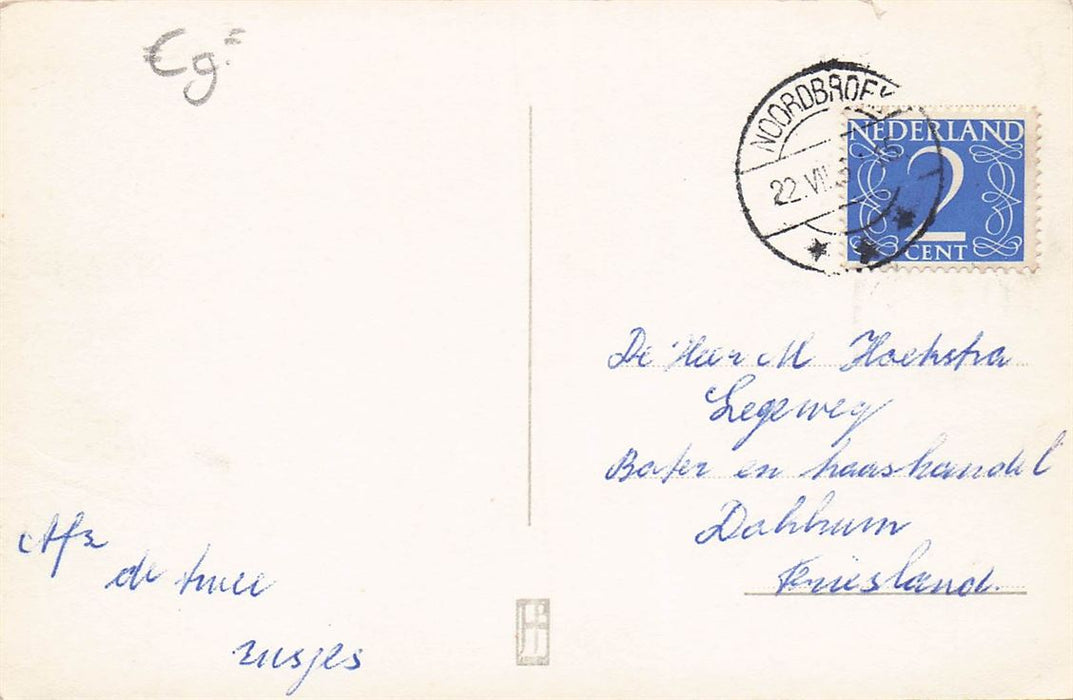 €g.=
NOORDBROEK
22.VII
15
NEDERLAND
2
CENT
De Heer M Hoekstra
Legeweg
Boter en kaashandel
Dokkum
Friesland.
Afz
de twee
zusjes